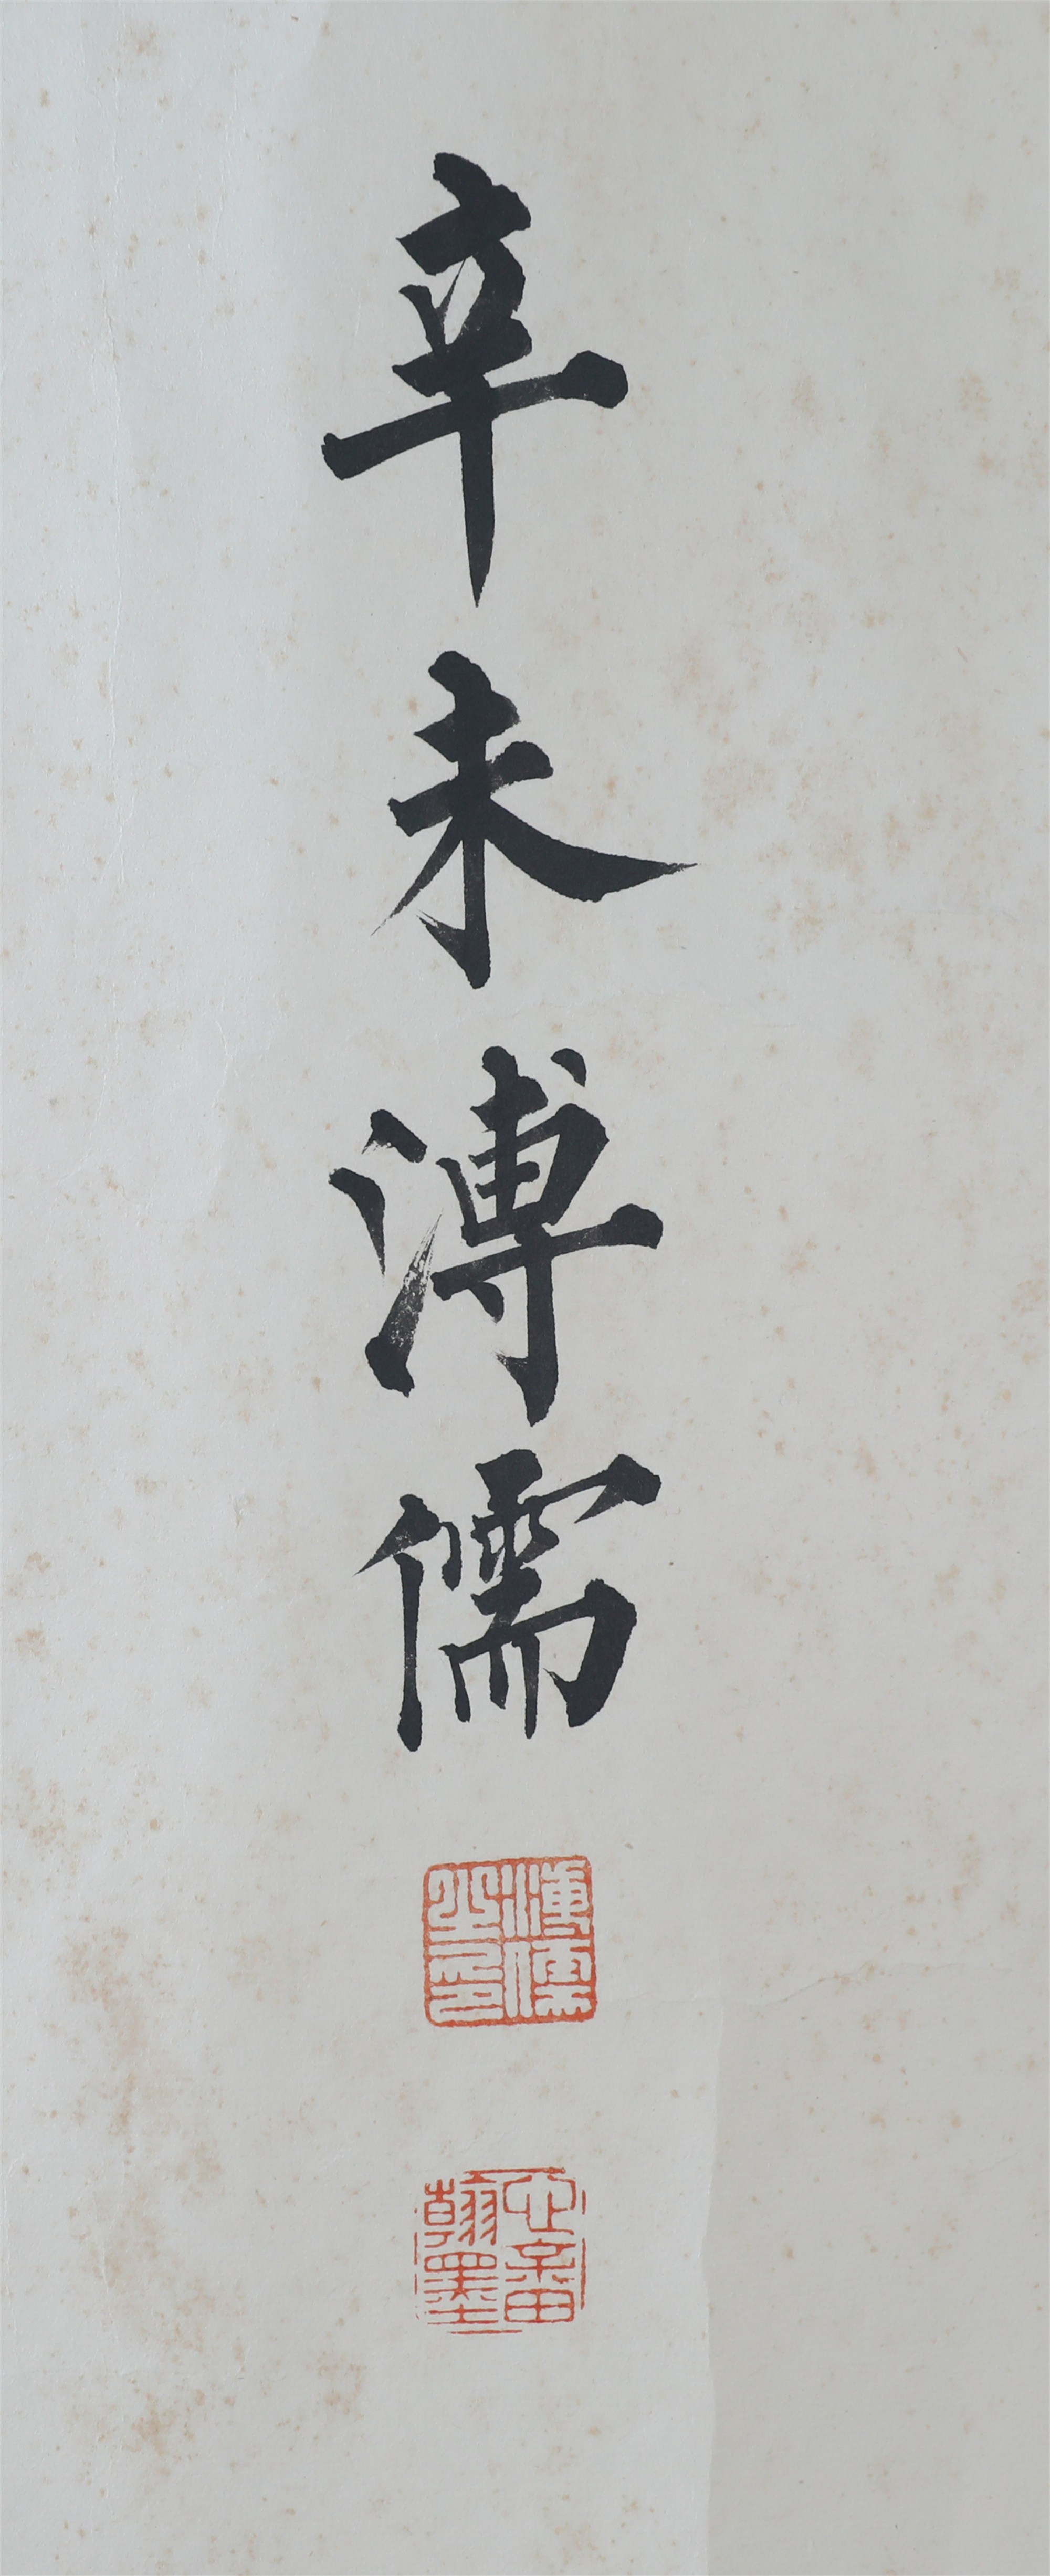 辛未溥儒
溥儒之印
心畬翰墨